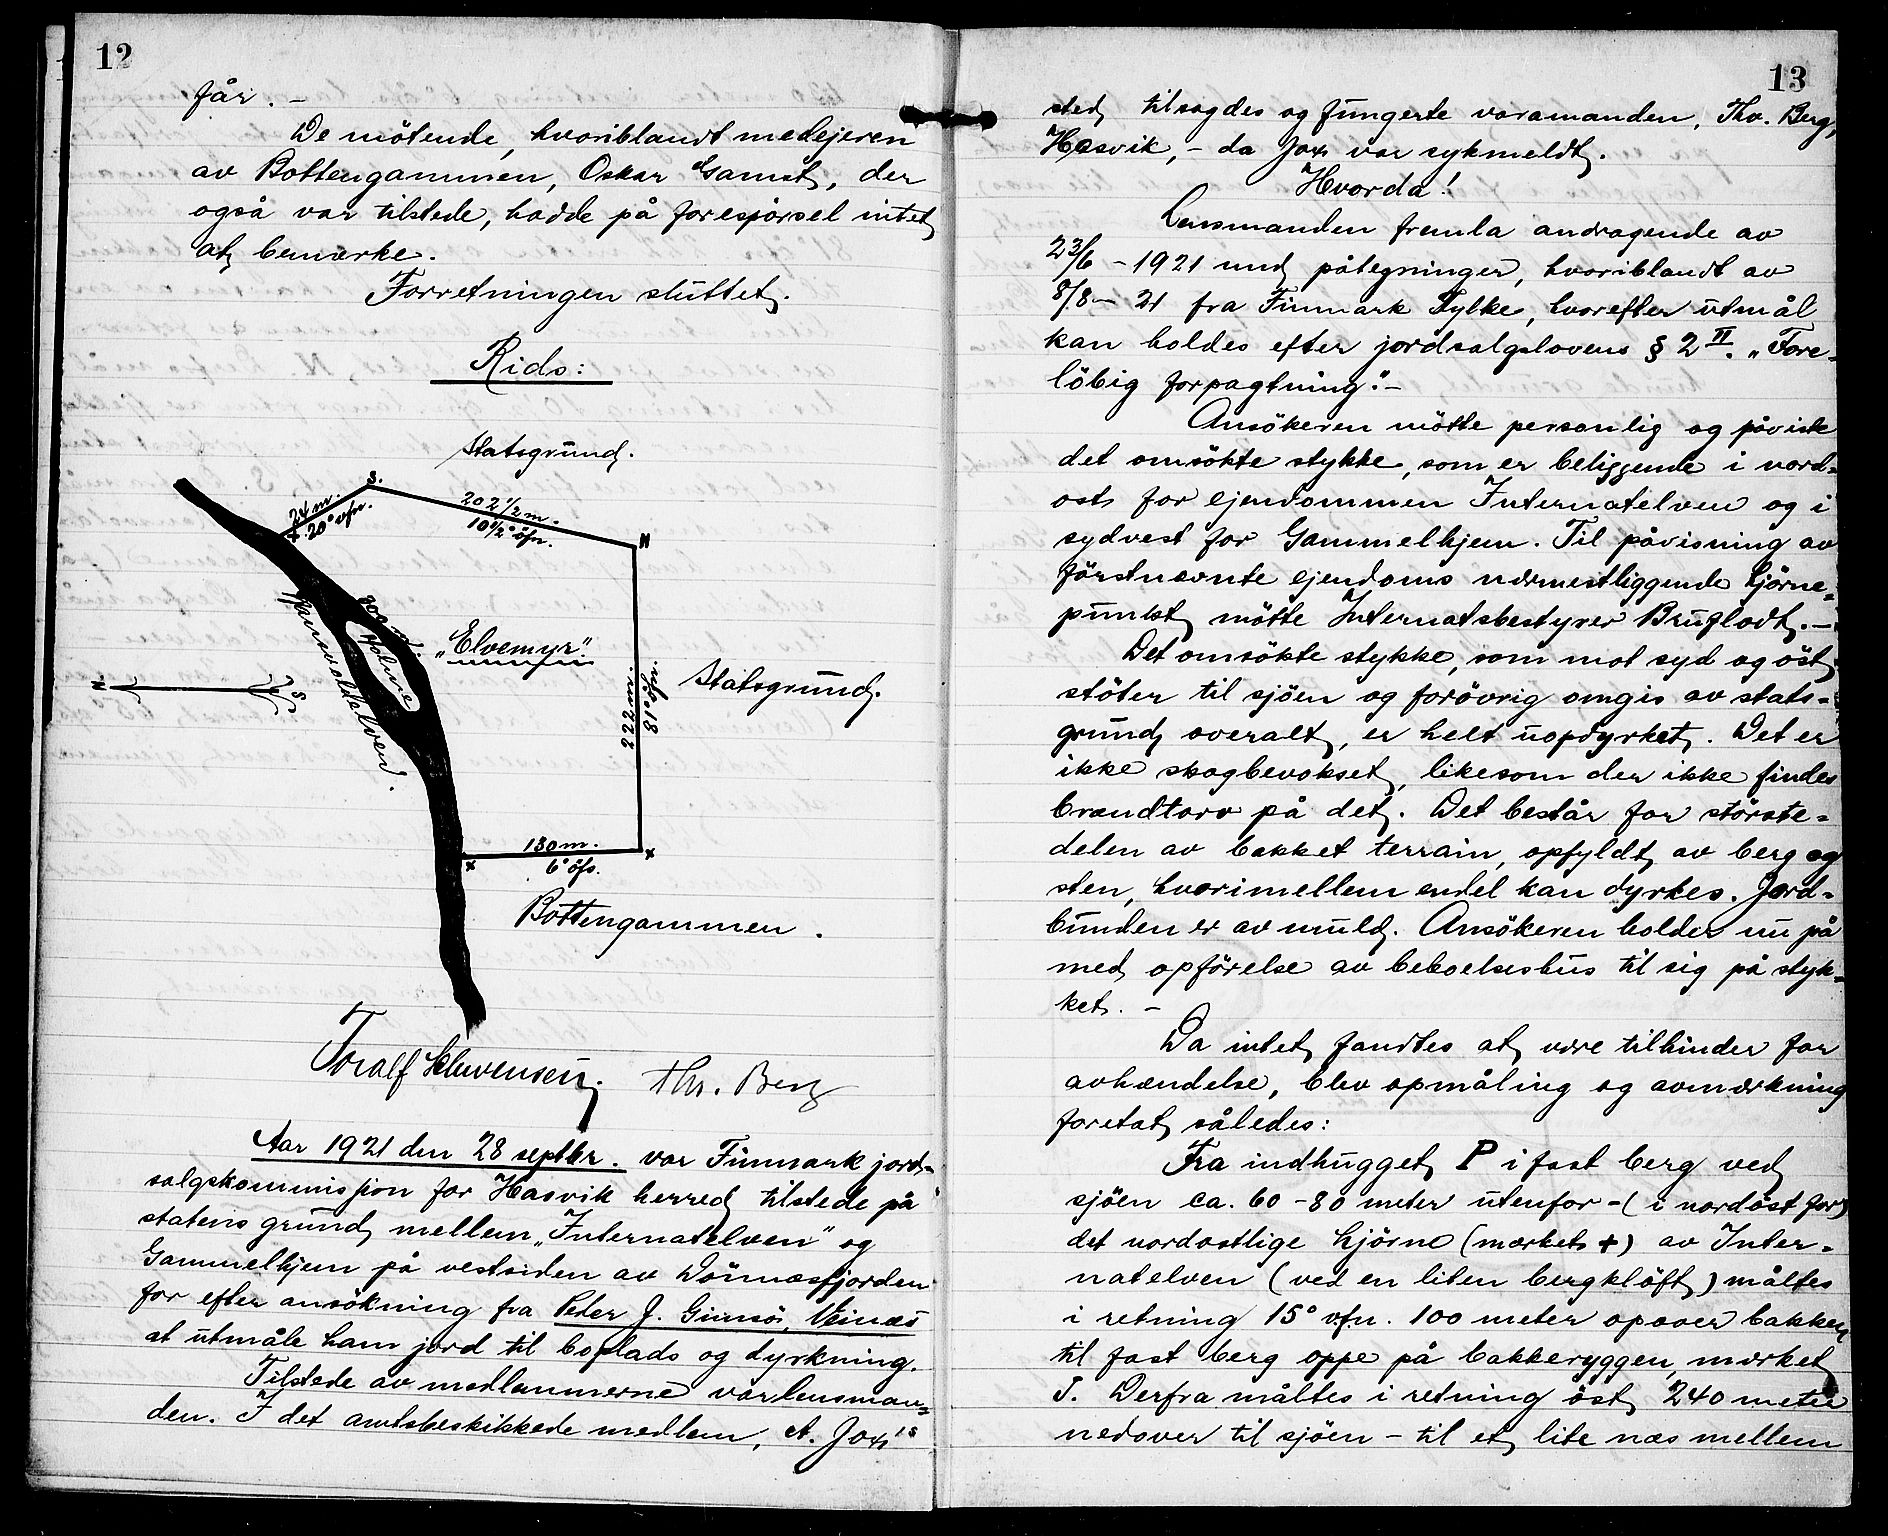 12
får. –
De mötende, hvoriblandt medejeren
av Bottengammen, Oskar Gamst, der
også var tilstede, hadde på forespörsel intet
at bemerke.
Forretningen sluttet.
Rids:
Statsgrund.
S.
24 m.
20° vfn.
202½ m.
10½° öfn.
N
300 m.
Holme
"Elvemyr".
222 m.
81° öfn.
Statsgrund.
N
S
130 m.
6° öfs.
Bottengammen.
Toralf
Thv. Berg
Aar 1921 den 28 septbr. var Finmark jord-
salgskommissjon for Hasvik herred tilstede på
statens grund mellem "Internatelven" og
Gammelhjem på vestsiden av Dönnesfjorden
for efter ansökning fra Peder J. Gimsö,
at utmåle ham jord til boplads og dyrkning.
Tilstede av medlemmerne var lensman-
den. I det amtsbeskikkede medlem, A. Jox's
13
sted tilsagdes og fungerte varamanden, Thv. Berg,
Hasvik, – da Jox var sykmeldt.
Hvorda!
Lensmanden fremla andragende av
23/6 – 1921 med påtegninger, hvoriblandt av
8/8 – 21 fra Finmark Fylke, hvorefter utmål
kan holdes efter jordsalgslovens § 2 II. "Fore-
löbig forpagtning". –
Ansökeren mötte personlig og påviste
det omsökte stykke, som er beliggende i nord-
ost for ejendommen Internatelven og i
sydvest for Gammelhjem. Til påvisning av
förstnævnte ejendoms nærmestliggende hjörne-
punkt mötte Internatsbestyrer Bruflodt. –
Det omsökte stykke, som mot syd og öst
stöter til sjöen og forövrig omgis av stats-
grund overalt, er helt uopdyrket. Det er
ikke skogbevokset, likesom der ikke findes
brændtorv på det. Det består for störste-
delen av bakket terrain, opfyldt av berg og
sten, hvorimellem endel kan dyrkes. Jord-
bunden er av muld. Ansökeren holder nu på
med opförelse av beboelseshus til sig på styk-
ket. –
Da intet fandtes at være tilhinder for
avhændelse, blev opmåling og avmerkning
foretat således:
Fra indhugget P i fast berg ved
sjöen ca. 60 – 80 meter utenfor – (i nordöst for)
det nordostlige hjörne (merket +) av Inter-
natelven (ved en liten bergklöft) måltes
i retning 15° vfn. 100 meter opover bakken
til fast berg oppe på bakkeryggen, merket
J. Derfra måltes i retning öst 240 meter
nedover til sjöen – til et lite næs mellem